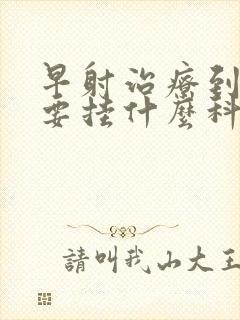 早射治療到
要挂什麼科
請叫我山大王